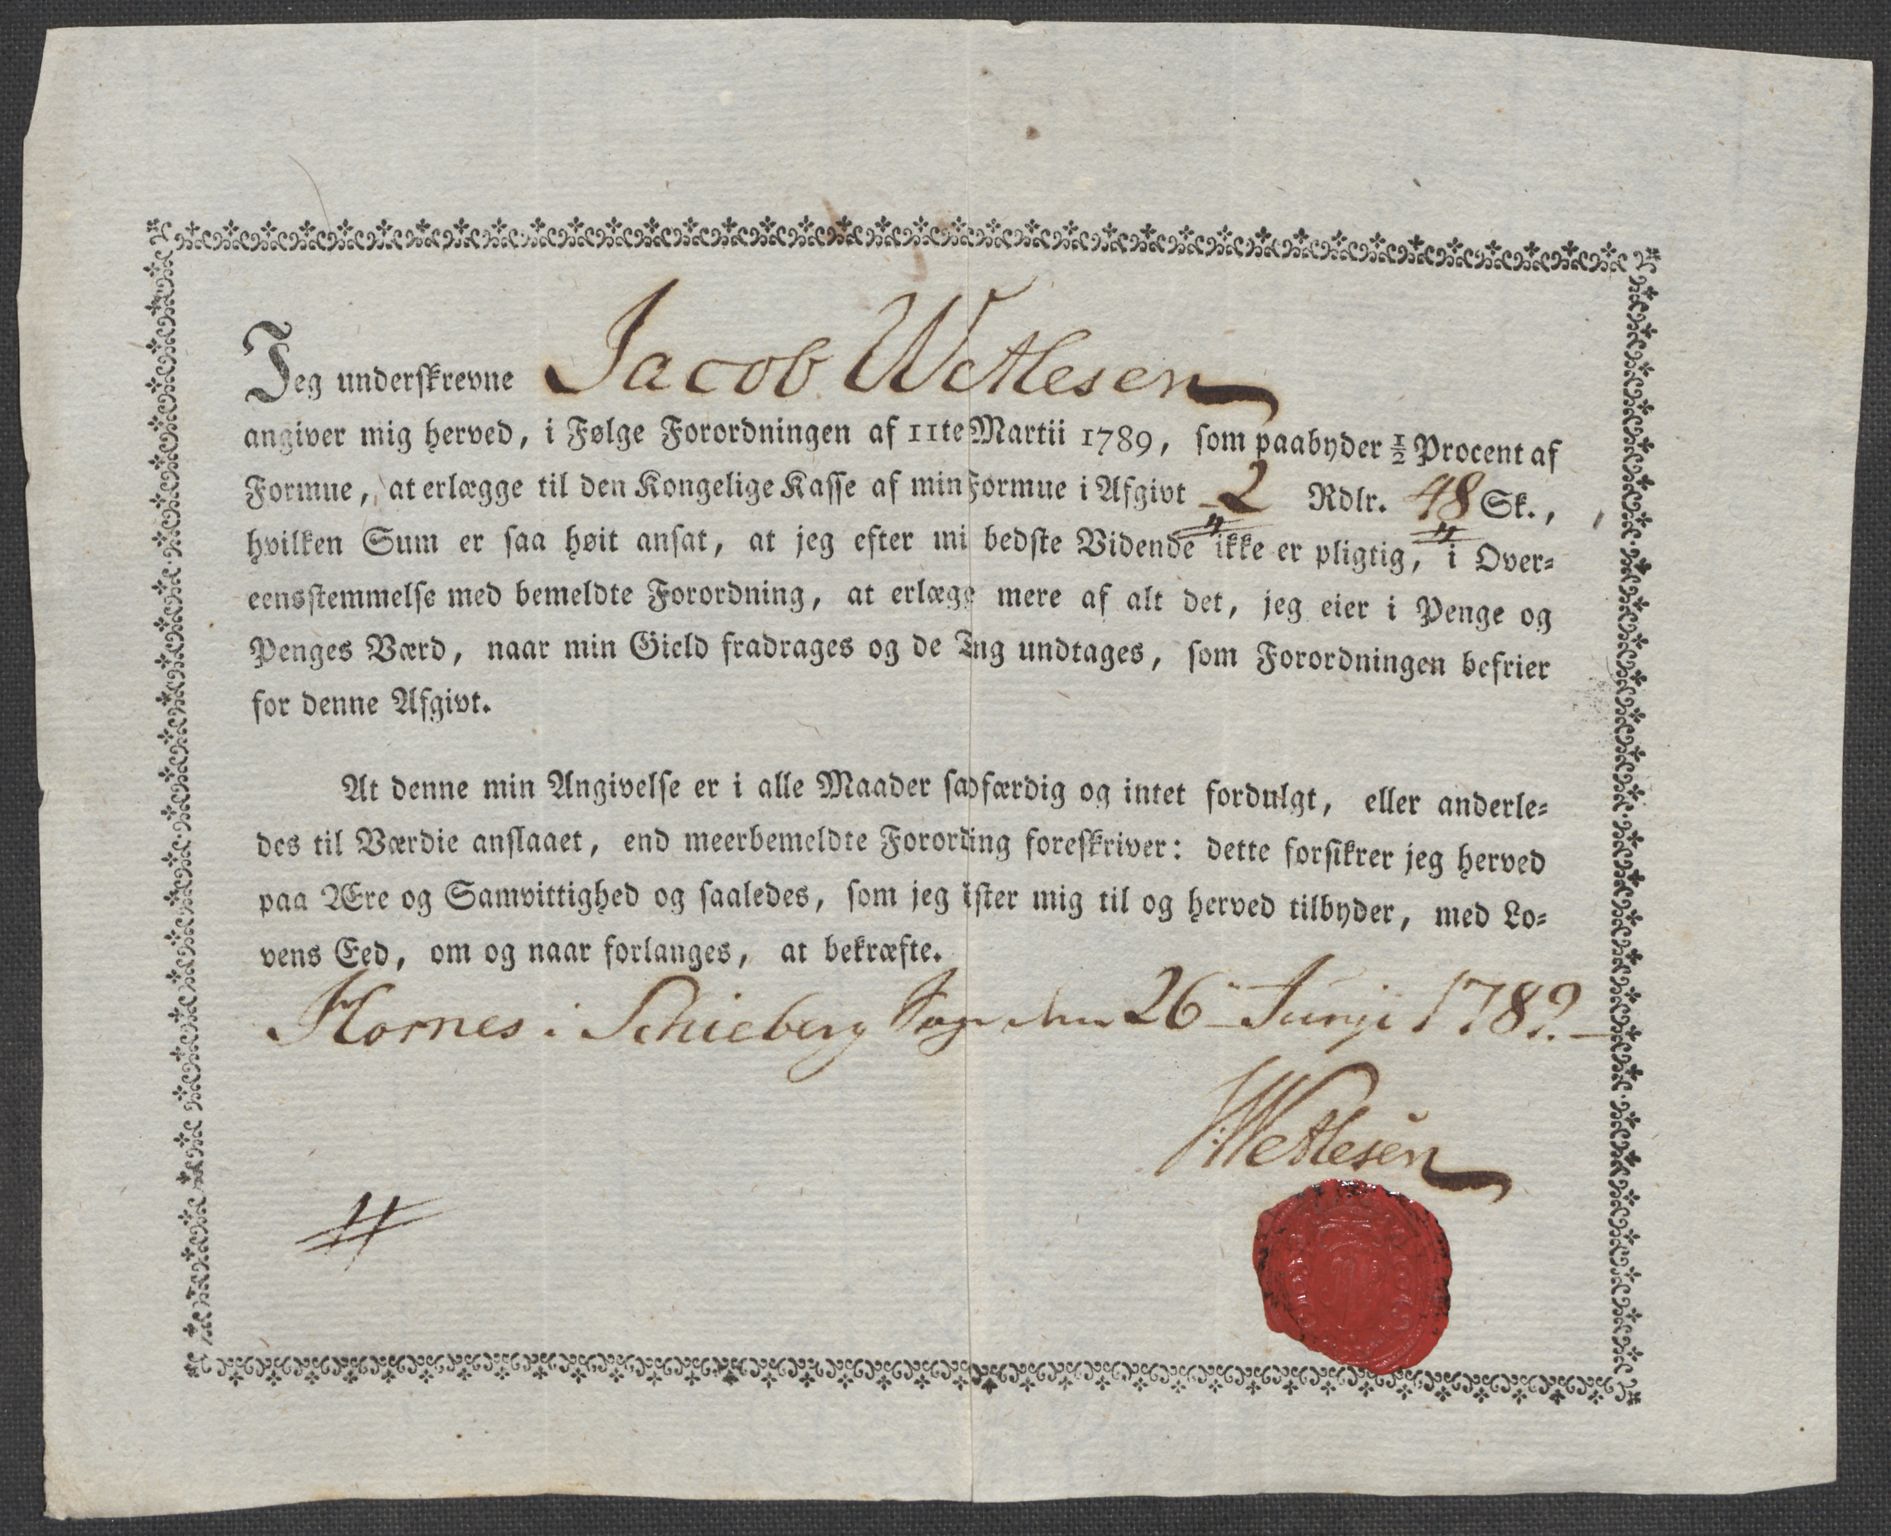 Jeg underskrevne Jacob Wetlesen
angiver mig herved, i Følge Forordningen af 11te Martii 1789, som paabyder ½ Procent af
Formue, at erlægge til den Kongelige Kasse af min Formue i Afgivt 2 Rdlr. 48 Sk.,
hvilken Sum er saa høit ansat, at jeg efter mi bedste Vidende ikke er pligtig, i Over-
eensstemmelse med bemeldte Forordning, at erlægge mere af alt det, jeg eier i Penge og
Penges Værd, naar min Gield fradrages og de Ting undtages, som Forordningen befrier
for denne Afgivt.
At denne min Angivelse er i alle Maader sandfærdig og intet fordulgt, eller anderle-
des til Værdie anslaaet, end meerbemeldte Forordning foreskriver: dette forsikrer jeg herved
paa Ære og Samvittighed og saaledes, som jeg trister mig til og herved tilbyder, med Lo-
vens Eed, om og naar forlanges, at bekræfte.
Hornes i Schieberg Sogn den 26 Junji 1789.
J: Wetlesen